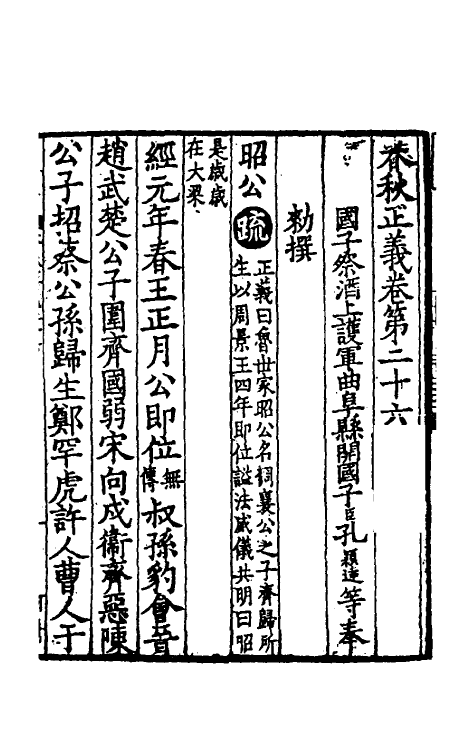 春秋正義卷第二十六
國子祭酒上護軍曲阜縣開國子臣孔穎達等奉
勑撰
昭公疏正義曰魯世家昭公名裯襄公之子齊歸所
生以周景王四年即位謚法威儀共明曰昭
是歲歲
在大梁
經元年春王正月公即位無
傳叔孫豹會晉
趙武楚公子圍齊國弱宋向戌衛齊惡陳
公子招蔡公孫歸生鄭罕虎許人曹人于